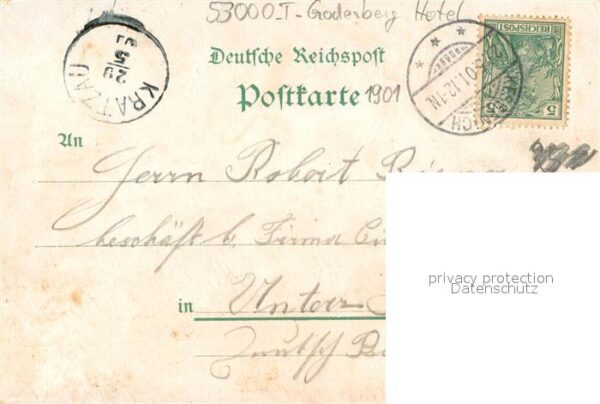 53000-I-Godesberg Hotel
Deutsche Reichspost
Postkarte 1901
KRATZAU
29
5
REICHSPOST
5 5
01.12-1N.
An
Herrn Robert
beschäft b. Firma
in Unter
Deutsch
privacy protection
Datenschutz